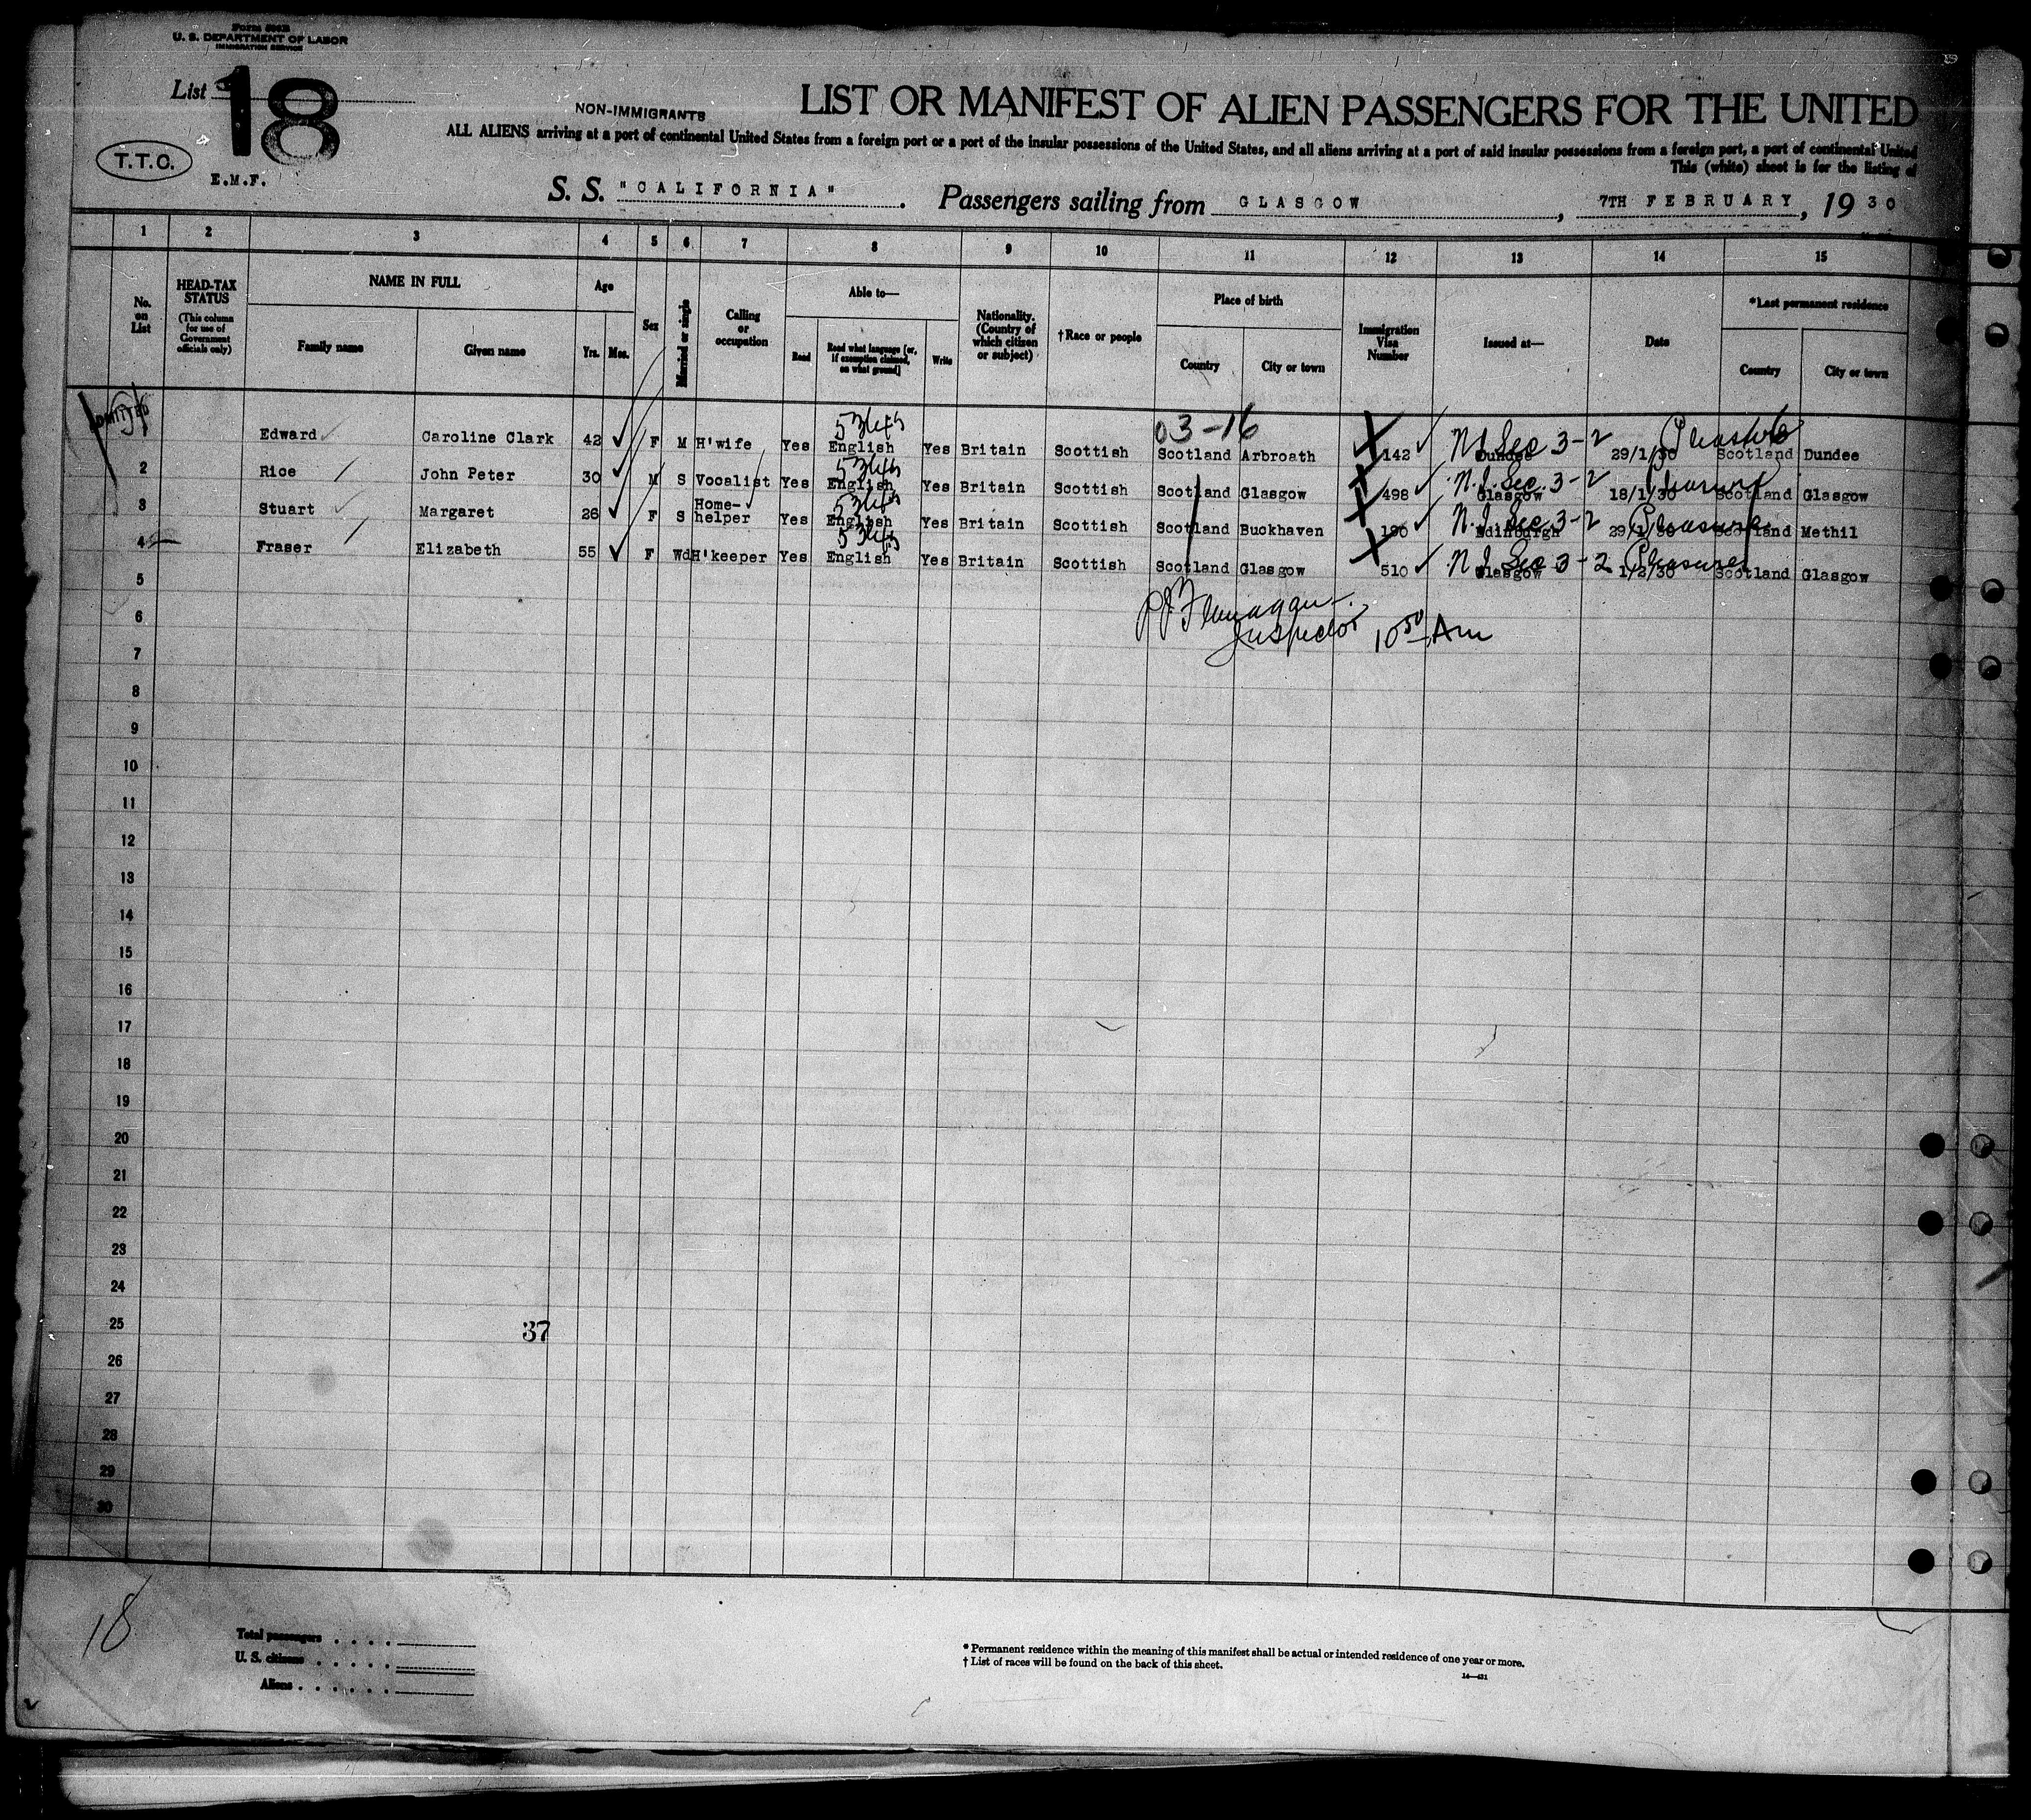 Form 500B
U. S. DEPARTMENT OF LABOR
IMMIGRATION SERVICE
List 18
NON-IMMIGRANTS
LIST OR MANIFEST OF ALIEN PASSENGERS FOR THE UNITED
ALL ALIENS arriving at a port of continental United States from a foreign port or a port of the insular possessions of the United States, and all aliens arriving at a port of said insular possessions from a foreign port, a port of continental United
This (white) sheet is for the listing of
T.T.C.
E.M.F.
S. S. "CALIFORNIA". Passengers sailing from GLASGOW, 7TH FEBRUARY, 1930
1 2 3 4 5 6 7 8 9 10 11 12 13 14 15
No. on List
HEAD-TAX STATUS (This column for use of Government officials only)
NAME IN FULL
Family name
Given name
Age
Yrs. Mos.
Sex
Married or single
Calling or occupation
Able to—
Read
Read what language [or, if exemption claimed, on what ground]
Write
Nationality. (Country of which citizen or subject)
†Race or people
Place of birth
Country
City or town
Immigration Visa Number
Issued at—
Date
*Last permanent residence
Country
City or town
ADMITTED
03-16
Edward Caroline Clark 42 F M H'wife Yes English Yes Britain Scottish Scotland Arbroath 142 Dundee 29/1/30 Scotland Dundee
N I Sec 3-2 Pleasure
2 Rice John Peter 30 M S Vocalist Yes English Yes Britain Scottish Scotland Glasgow 498 Glasgow 18/1/30 Scotland Glasgow
N.I. Sec. 3-2 Pleasure
3 Stuart Margaret 26 F S Home-helper Yes English Yes Britain Scottish Scotland Buckhaven 190 Edinburgh 29/1/30 Scotland Methil
N.I. Sec 3-2 Pleasure
4 Fraser Elizabeth 55 F Wd H'keeper Yes English Yes Britain Scottish Scotland Glasgow 510 Glasgow 1/2/30 Scotland Glasgow
N I Sec 3-2 Pleasure
5
PJ Flanagan
6
Inspector 10 50 Am
7
8
9
10
11
12
13
14
15
16
17
18
19
20
21
22
23
24
25
37
26
27
28
29
30
18
Total passengers
U. S. citizens
Aliens
* Permanent residence within the meaning of this manifest shall be actual or intended residence of one year or more.
† List of races will be found on the back of this sheet.
14—431